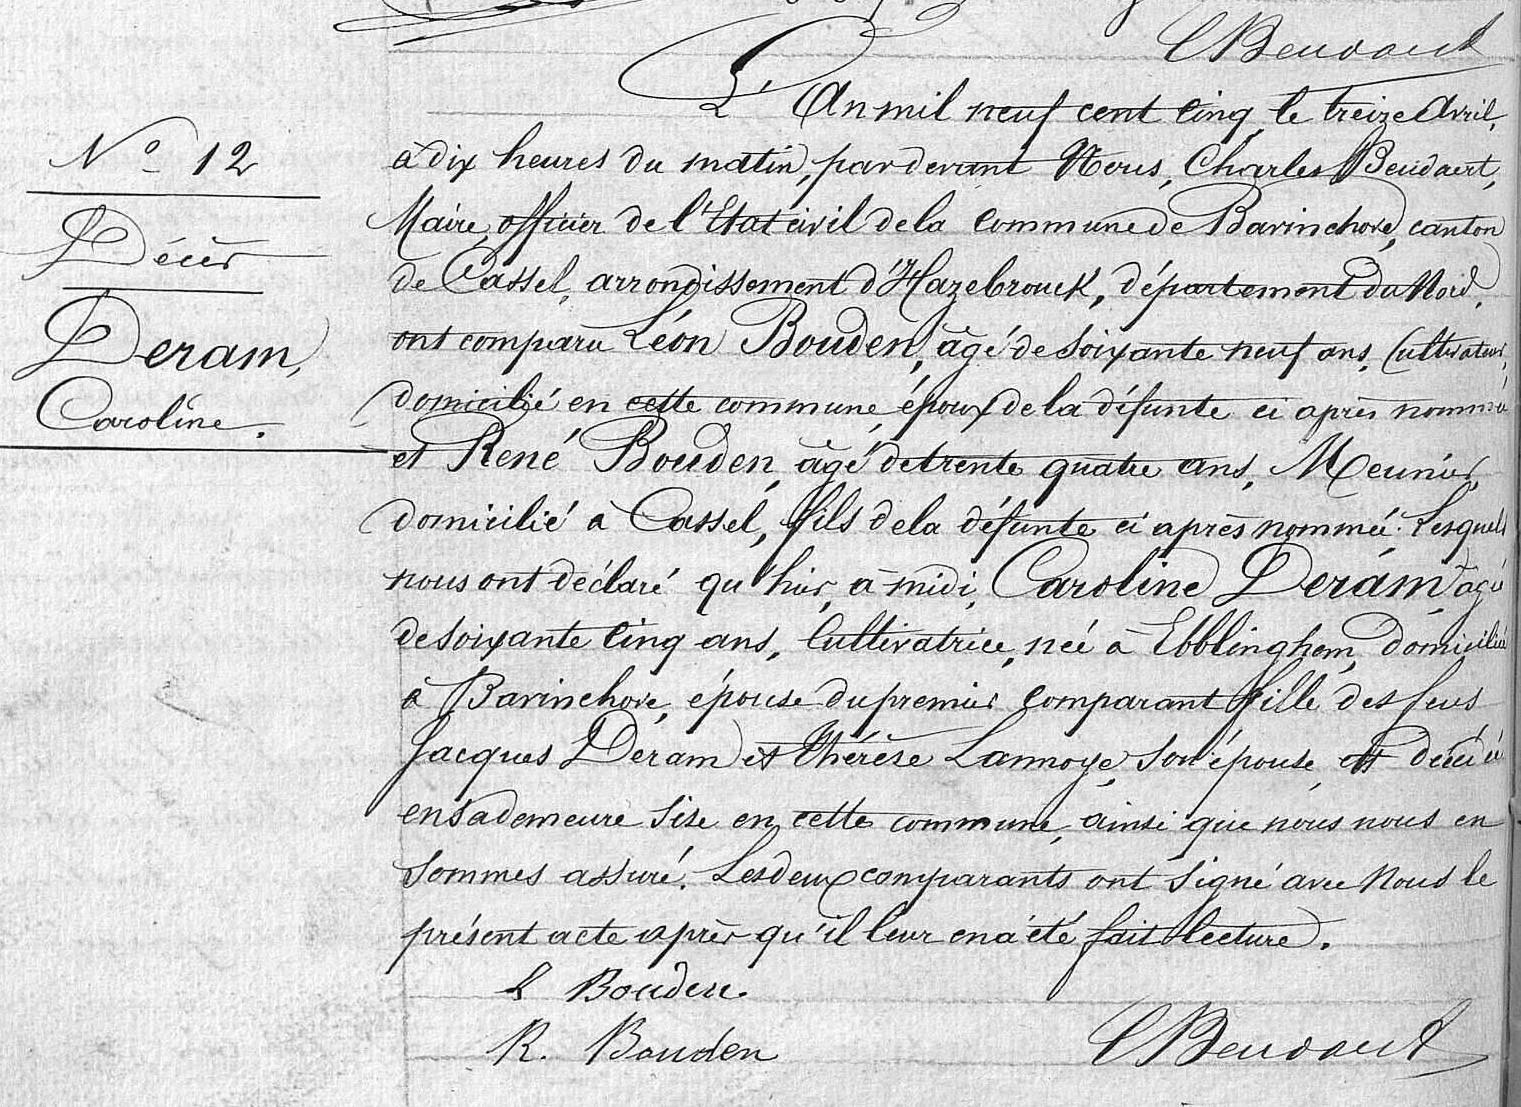 C Beudaert
N° 12
Décès
Deram,
Caroline.
L'An mil neuf cent cinq, le treize Avril,
à dix heures du matin, par devant Nous, Charles Beudaert,
Maire, officier de l'Etat civil de la commune de Bavinchove, canton
de Cassel, arrondissement d'Hazebrouck, département du Nord,
ont comparu Léon Bouden, âgé de soixante neuf ans, Cultivateur,
domicilié en cette commune, époux de la défunte ci après nommée
et René Bouden, âgé de trente quatre ans, Meunier,
domicilié à Cassel, fils de la défunte ci après nommée. Lesquels
nous ont déclaré qu'hier, à midi, Caroline Deram, âgée
de soixante cinq ans, Cultivatrice, née à Ebblinghem, domiciliée
à Bavinchove, épouse du premier comparant, fille des feus
Jacques Deram et Thérèse Lannoye, son épouse, est décédée
en sa demeure sise en cette commune, ainsi que nous nous en
sommes assuré. Les deux comparants ont signé avec Nous le
présent acte après qu'il leur en a été fait lecture.
L Bouden.
R. Bouden
C Beudaert